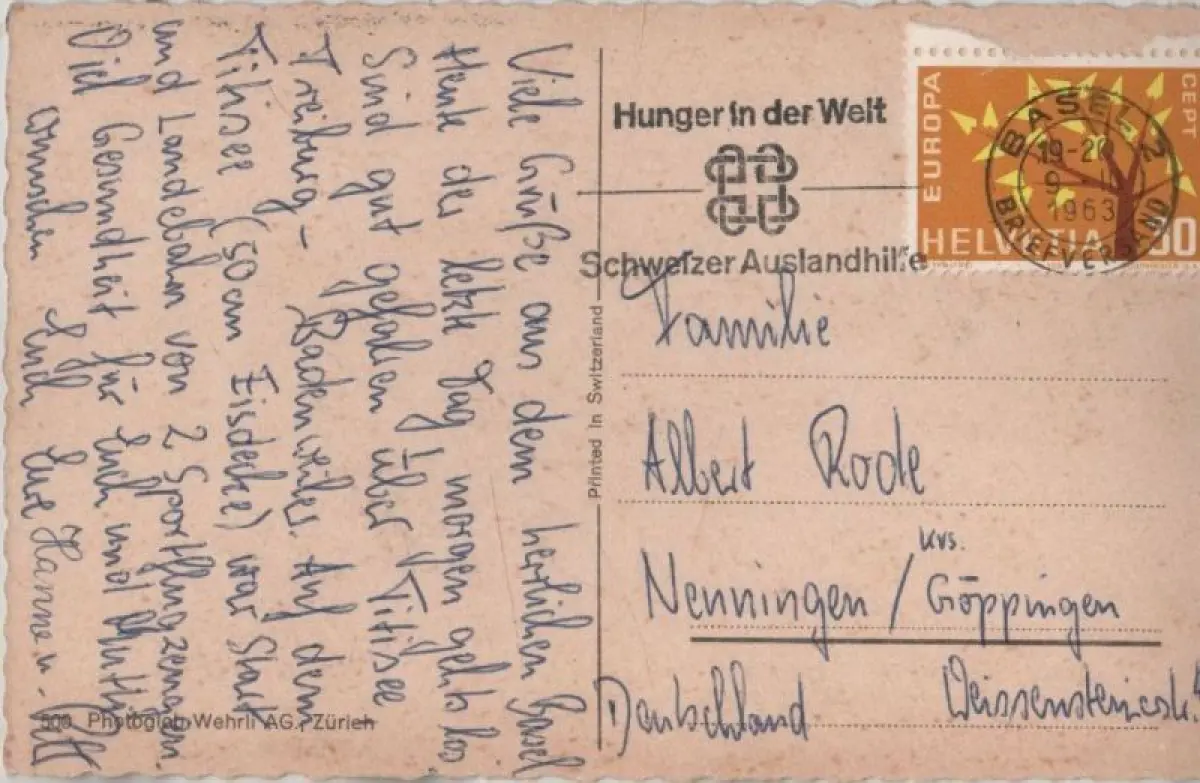 Viele Grüße aus dem herrlichen Basel
Heute der letzte Tag, morgen gehts los
Sind gut gefahren über Titisee
Freiburg - Badenweiler. Auf dem
Titisee (50cm Eisdecke) war Start
und Landebahn von 2 Sportflugzeugen.
Viel Gesundheit für Euch und Mutter
wünschen Euch Eure Hanne u.
Printed in Switzerland
Photoglob-Wehrli AG., Zürich
Hunger in der Welt
Schweizer Auslandhilfe
EUROPA
CEPT
HELVETIA 50
BASEL 2
19-20
1963
BRIEFVERSAND
Familie
Albert Rode
Nenningen / Krs. Göppingen
Deutschland